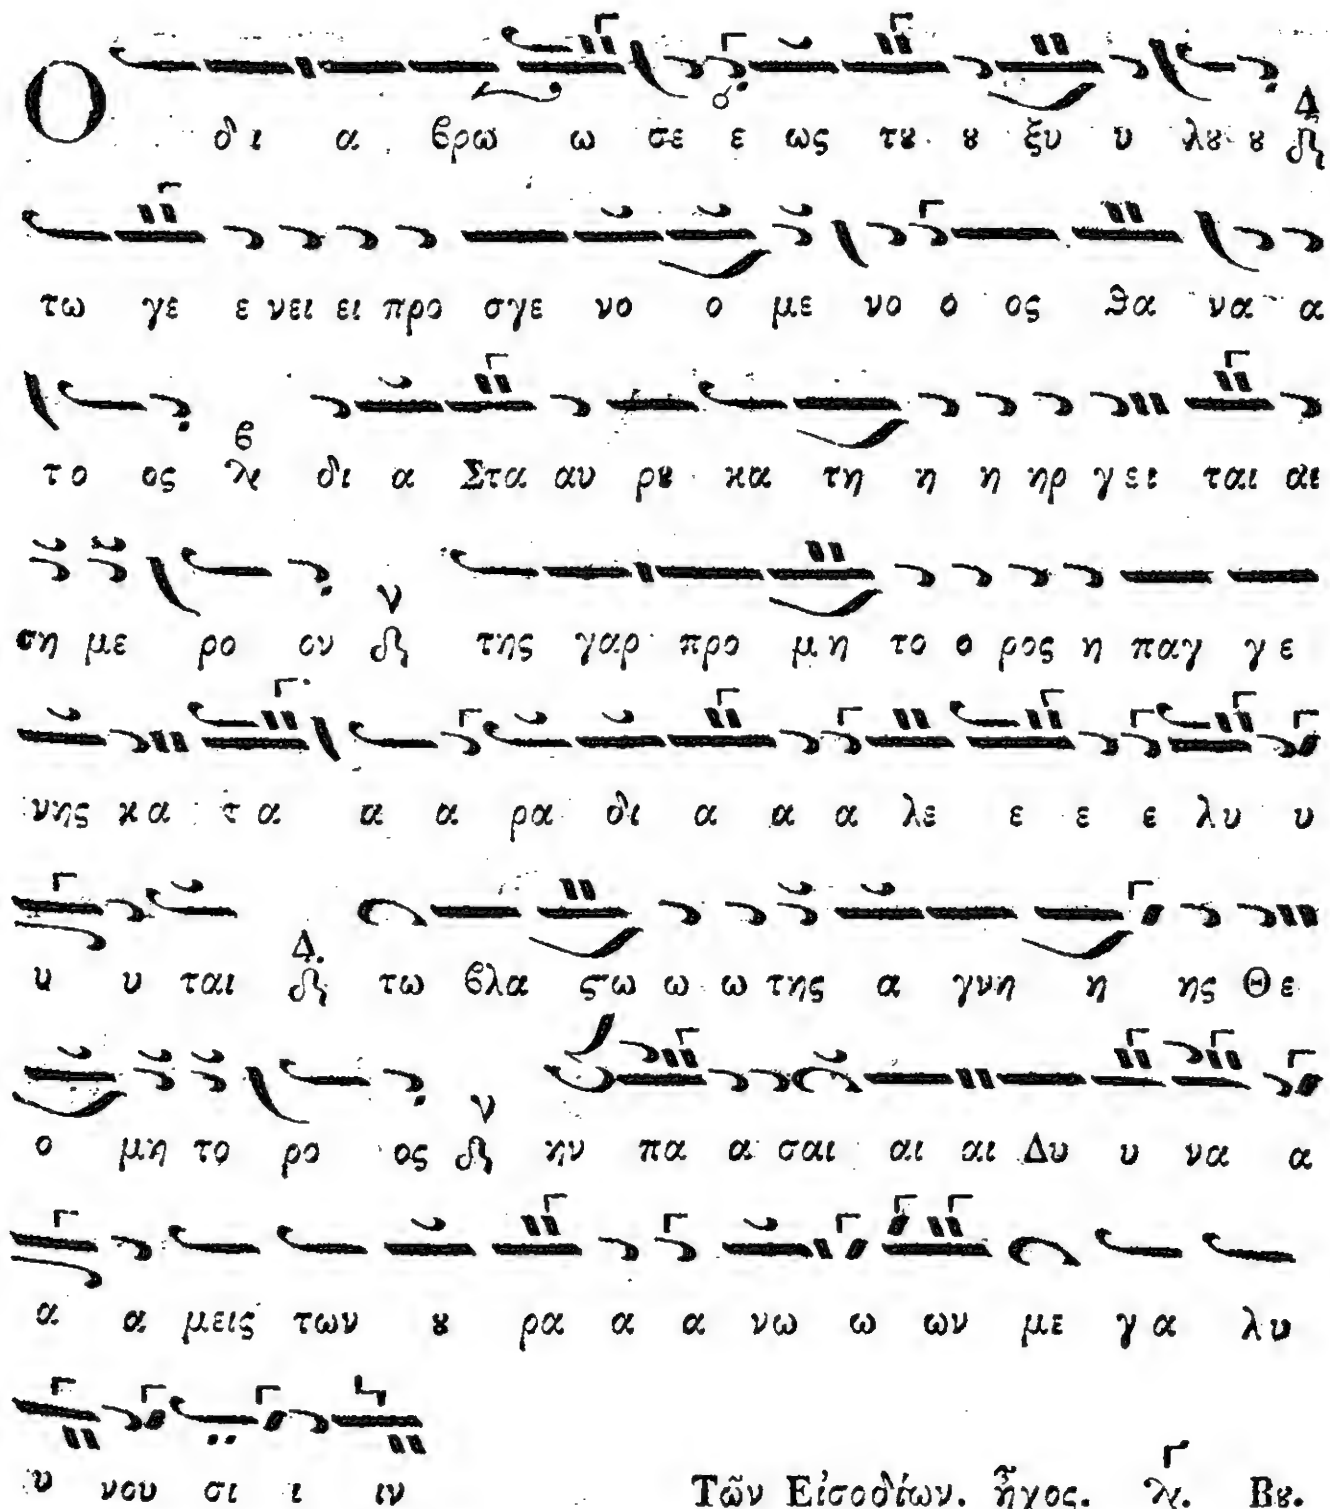 Ο δι α ϐρω ω σε ε ως τȣ ȣ ξυ υ λȣ ȣ Δ
τω γε ε νει ει προ σγε νο ο με νο ο ος ϑα να α
το ος ϐ δι α Στα αυ ρȣ κα τη η η ηρ γει ται αι
ση με ρο ον ν της γαρ προ μη το ο ρος η παγ γε
νης κα τα α α ρα δι α α α λε ε ε ε λυ υ
υ υ ται Δ. τω ϐλα ϛω ω ω της α γνη η ης Θε
ο μη το ρο ος ν ην πα α σαι αι αι Δυ υ να α
α α μεις των ȣ ρα α α νω ω ων με γα λυ
υ νου σι ι ιν
Τῶν Εἰσοδίων. ἦχος. Γ Βȣ.